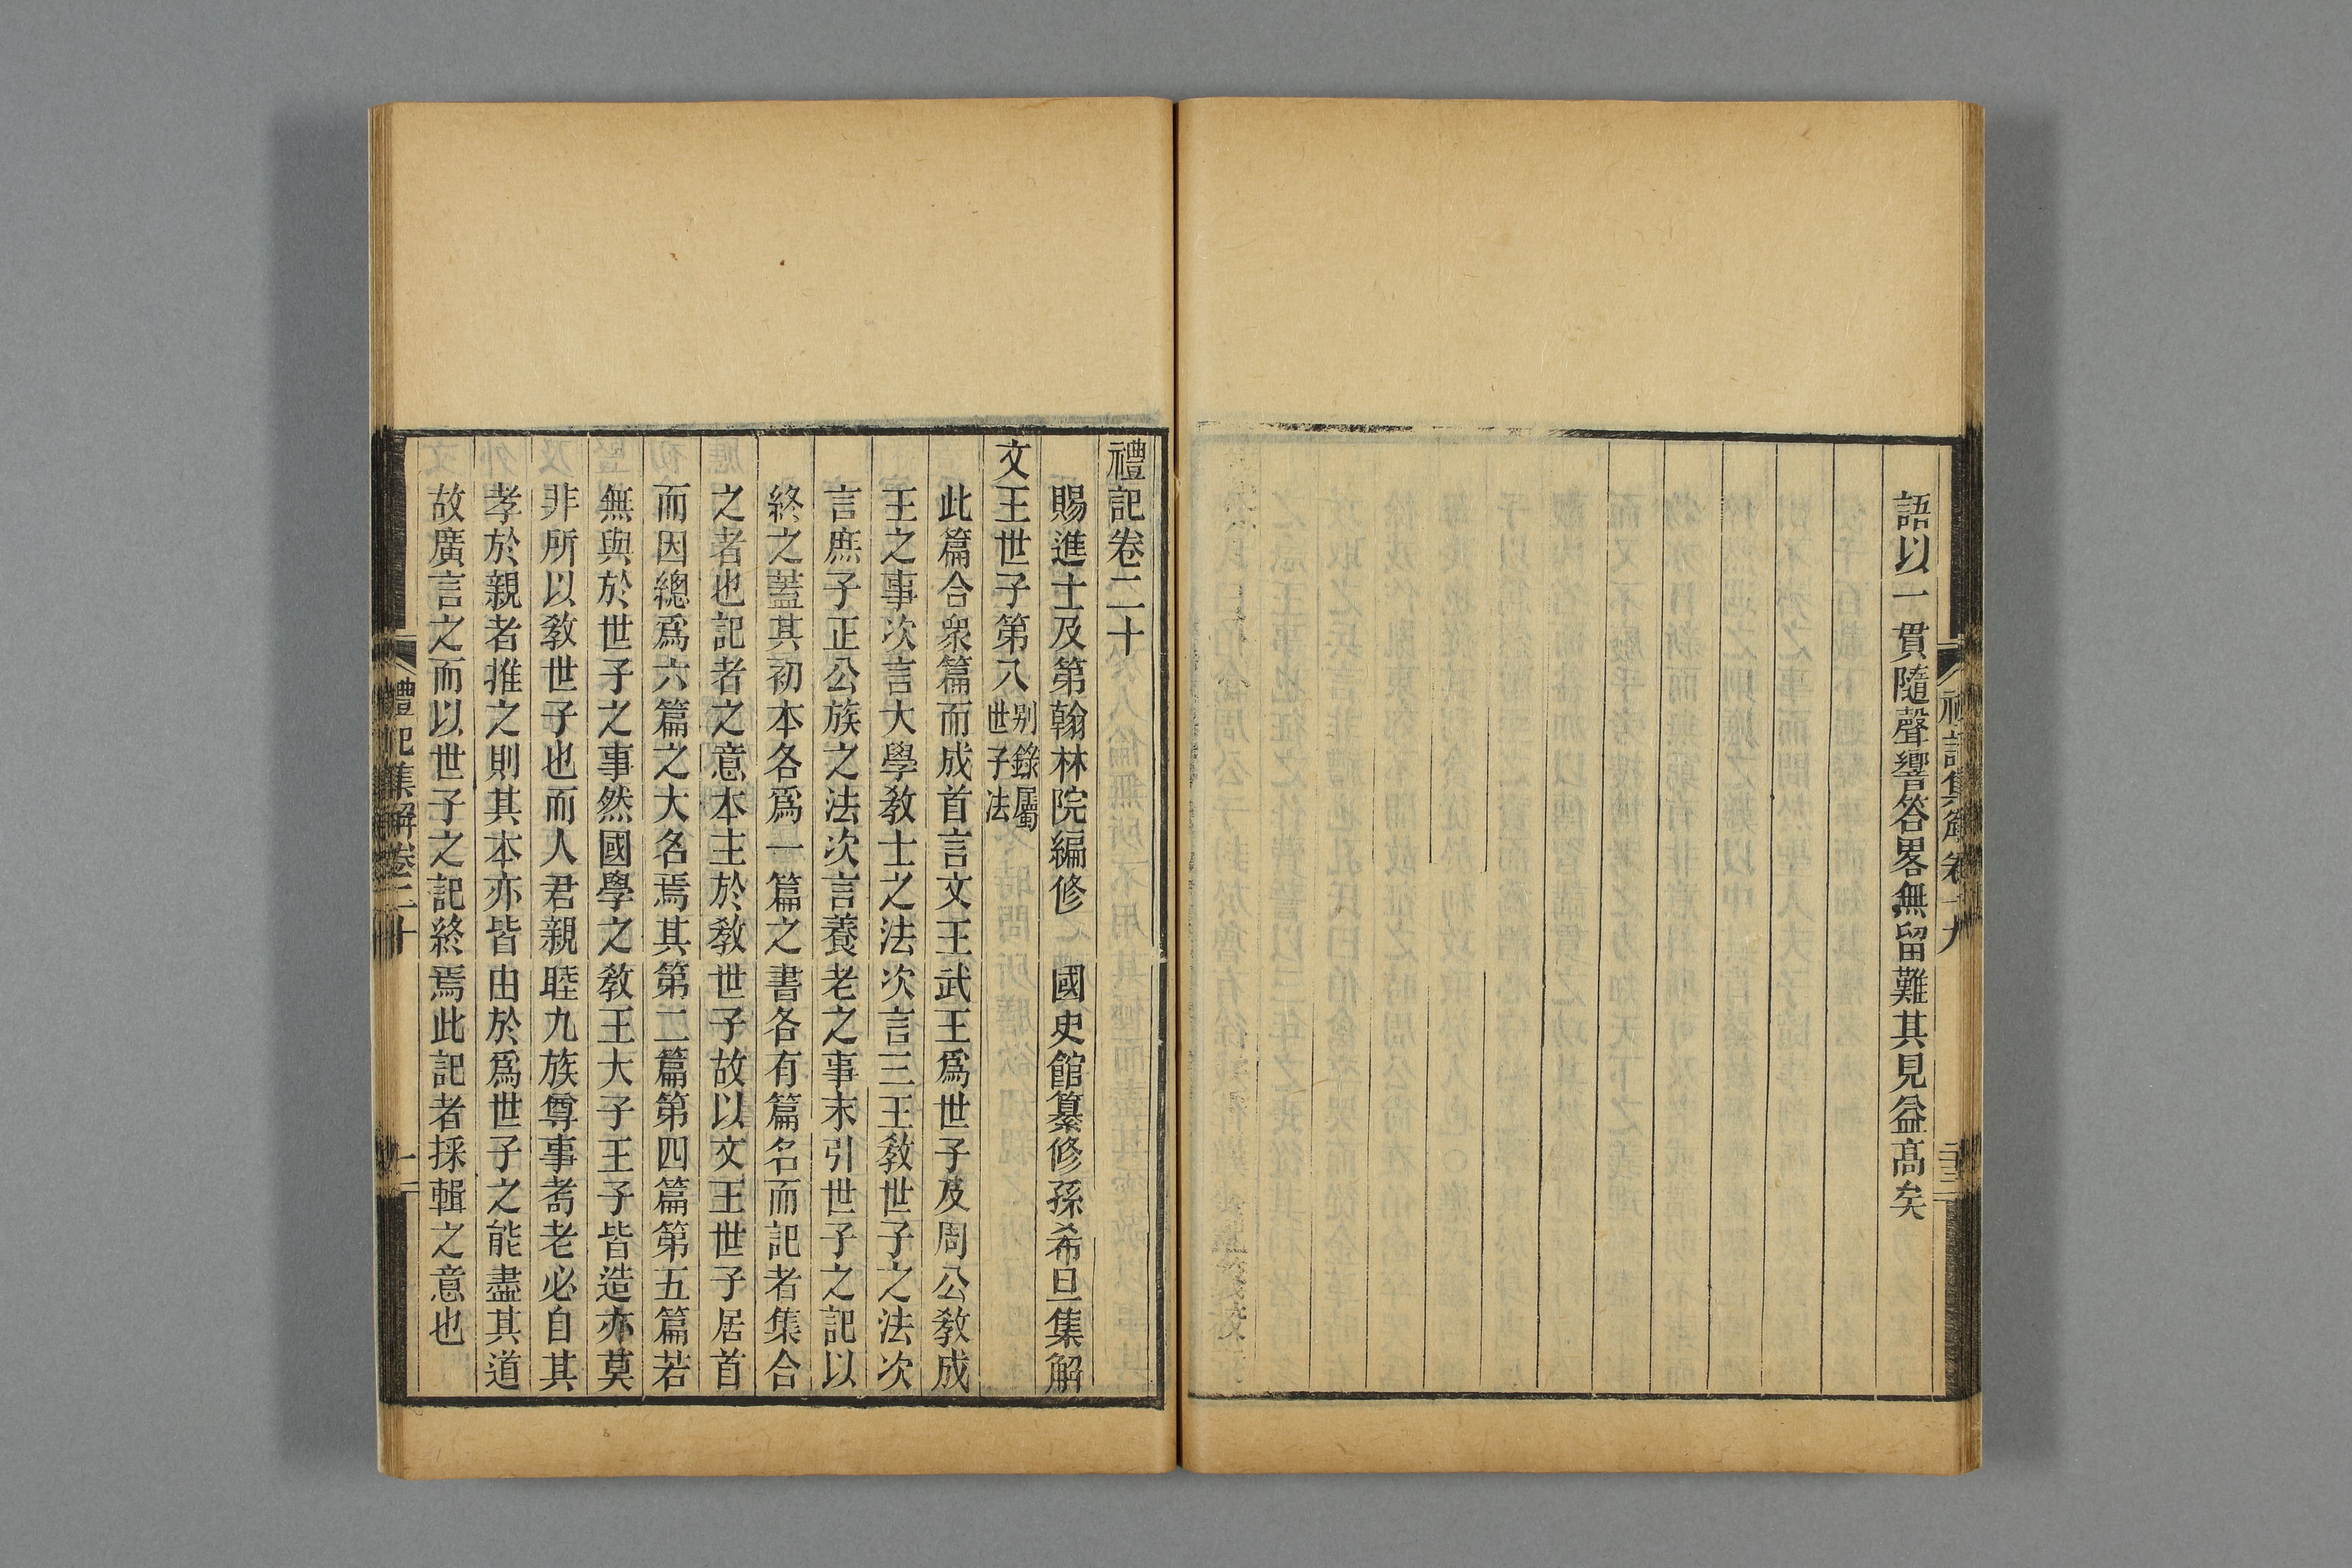 語以一貫隨聲響答畧無留難其見益髙矣
禮記集解卷十九
二十三
禮記卷二十
賜進士及第翰林院編修 國史館纂修孫希旦集解
文王世子第八别錄屬世子法
此篇合衆篇而成首言文王武王爲世子及周公敎成
王之事次言大學敎士之法次言三王敎世子之法次
言庶子正公族之法次言養老之事末引世子之記以
終之蓋其初本各爲一篇之書各有篇名而記者集合
之者也記者之意本主於敎世子故以文王世子居首
而因總爲六篇之大名焉其第二篇第四篇第五篇若
無與於世子之事然國學之敎王大子王子皆造亦莫
非所以敎世子也而人君親睦九族尊事耇老必自其
孝於親者推之則其本亦皆由於爲世子之能盡其道
故廣言之而以世子之記終焉此記者採輯之意也
禮記集解卷二十
一